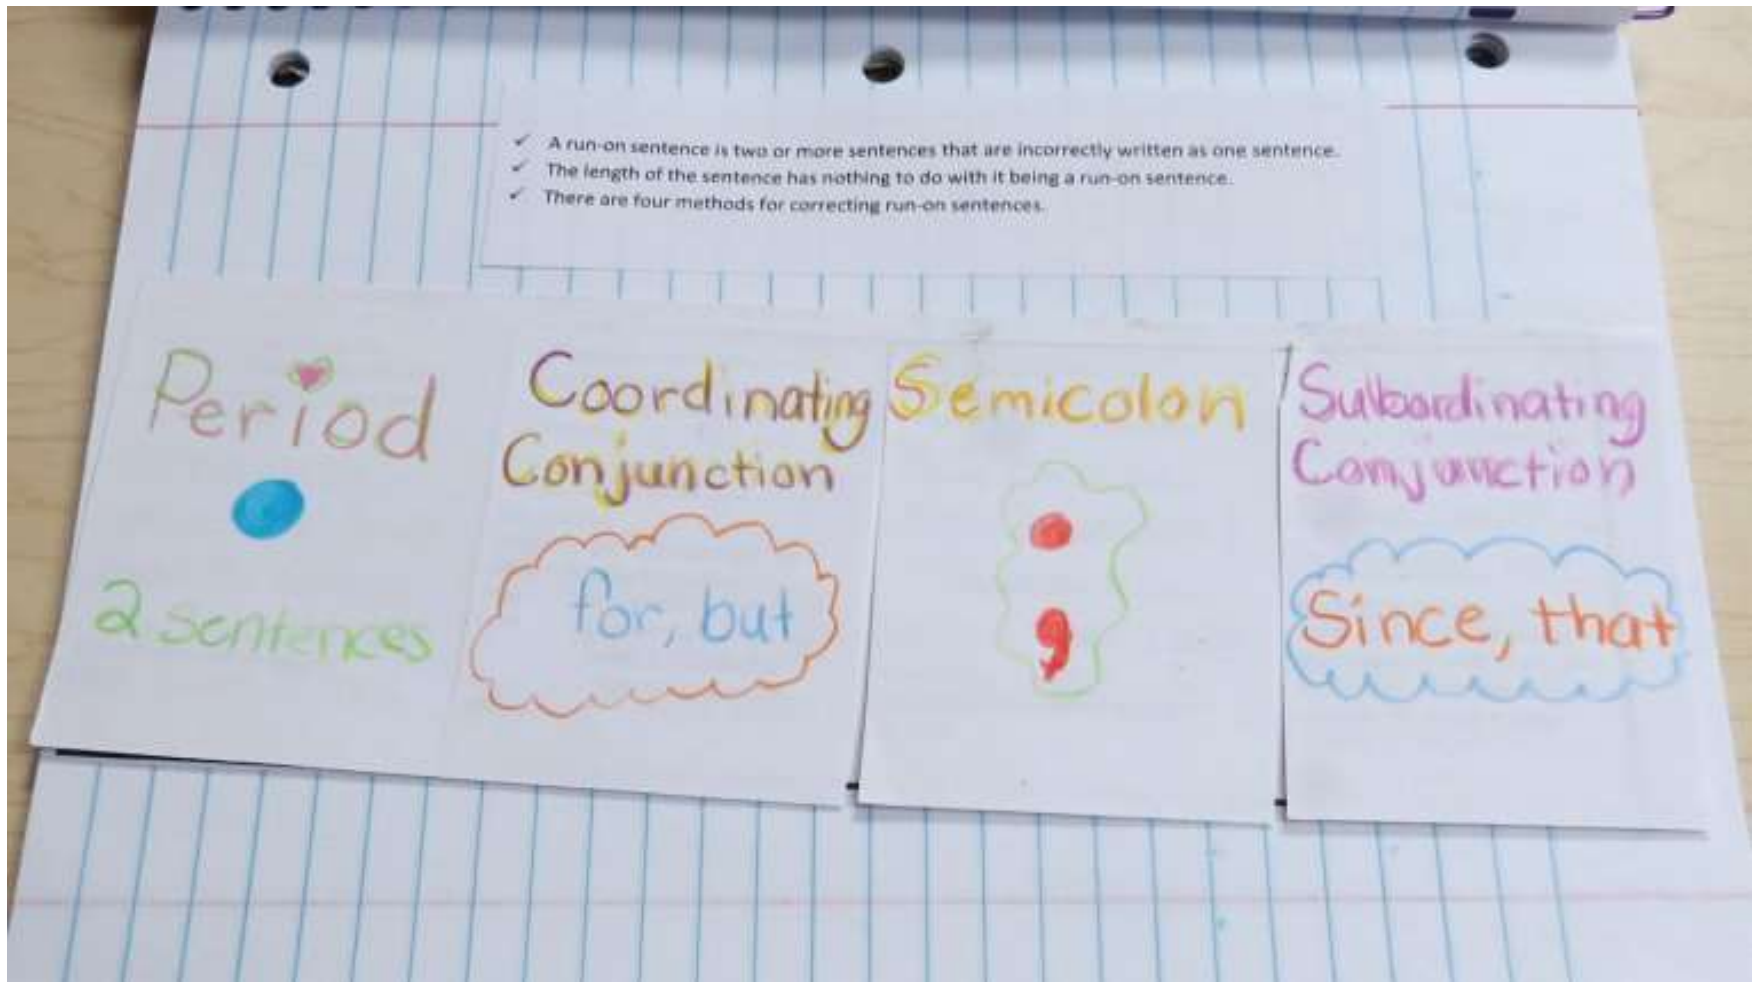 ✓ A run-on sentence is two or more sentences that are incorrectly written as one sentence.
✓ The length of the sentence has nothing to do with it being a run-on sentence.
✓ There are four methods for correcting run-on sentences.
Period
2 sentences
Coordinating
Conjunction
for, but
Semicolon
;
Subordinating
Conjunction
Since, that